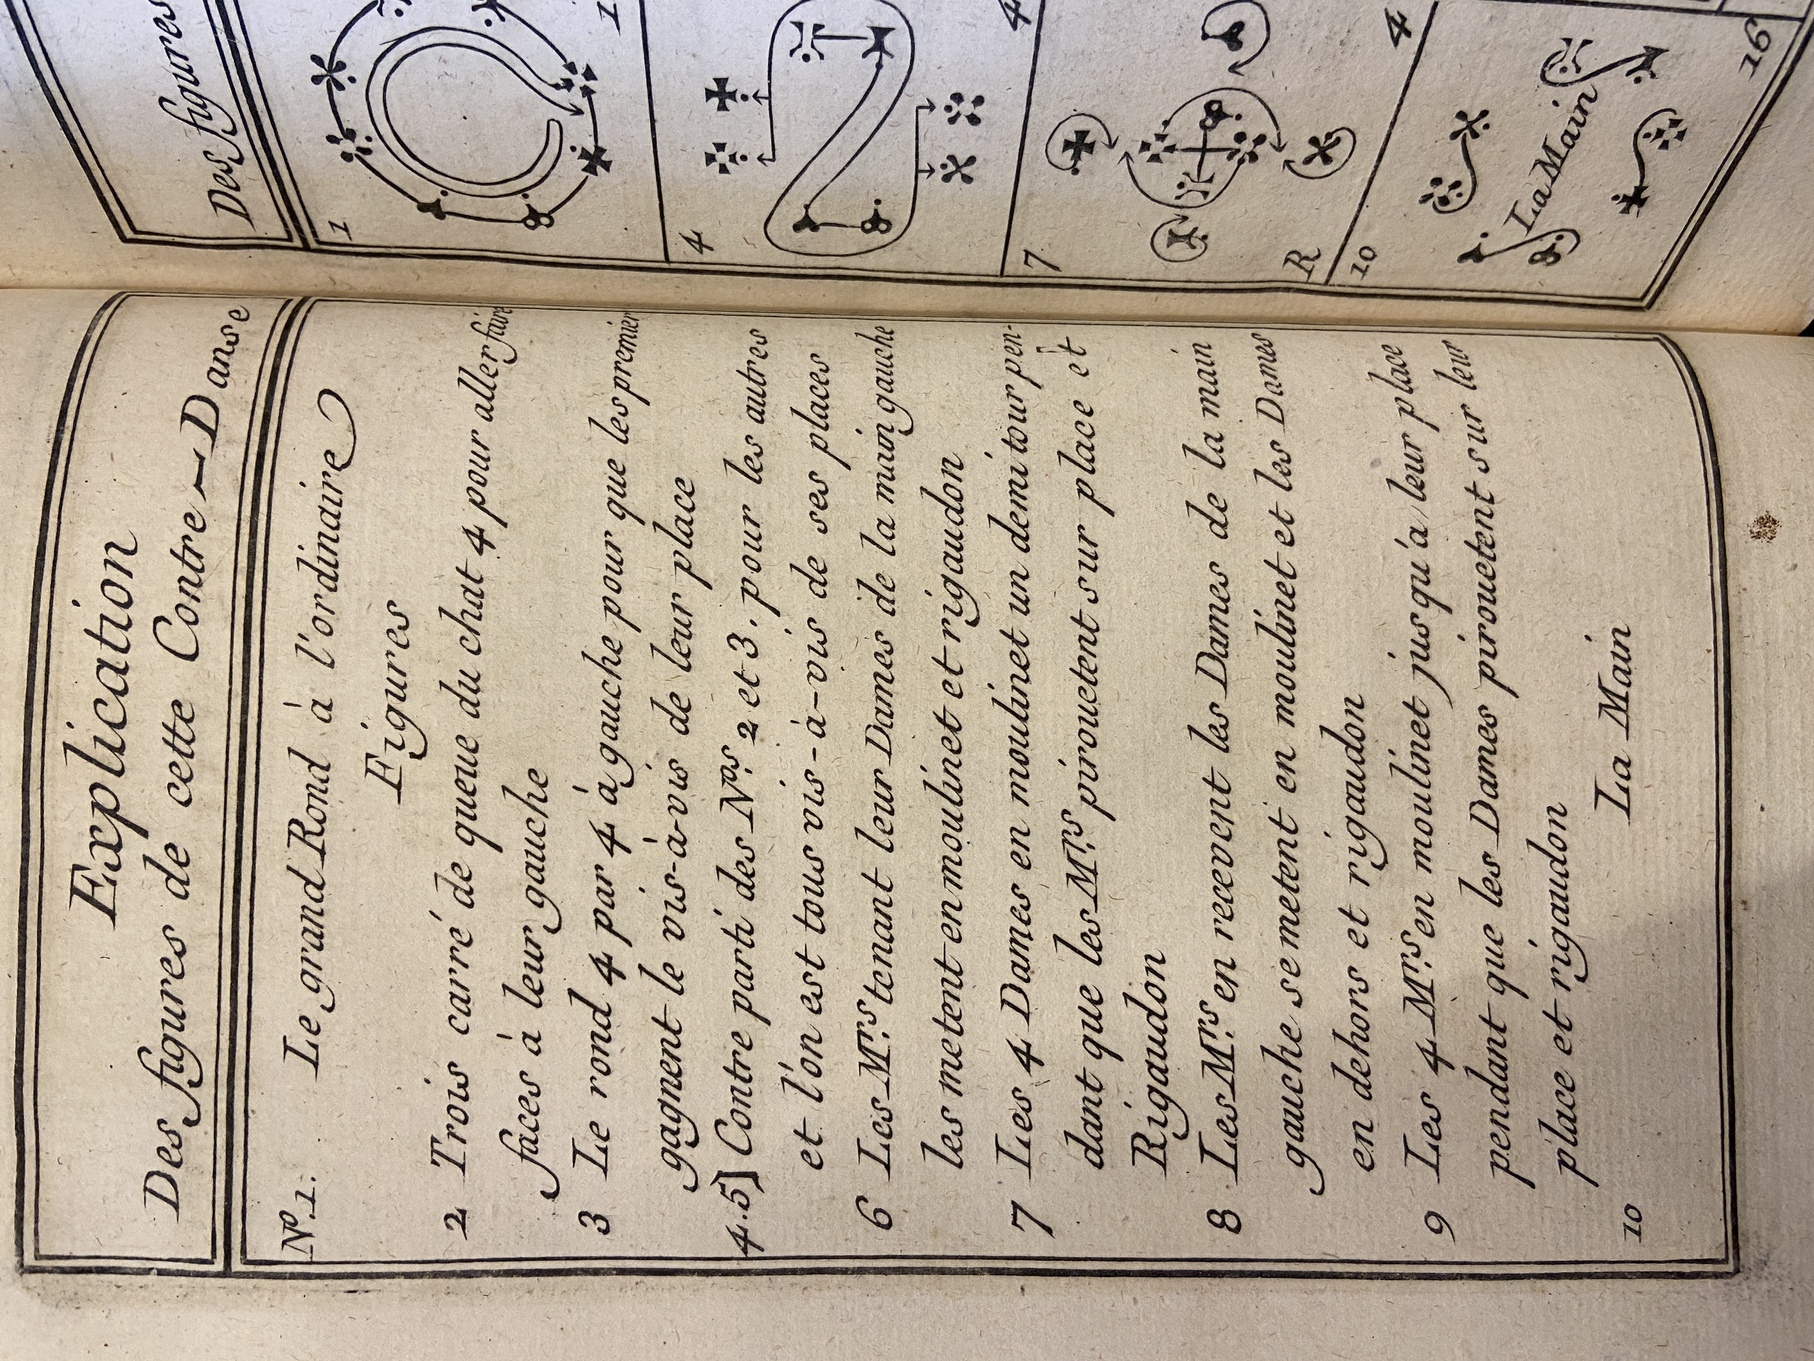 Explication
Des figures de cette Contre-Danse
Nº.1. Le grand Rond à l'ordinaire
Figures
2 Trois carré de queue du chat 4 pour aller faire
faces à leur gauche
3 Le rond 4 par 4 à gauche pour que les premier
gagnent le vis-à-vis de leur place
4.5) Contre parti des Nos. 2 et 3. pour les autres
et l'on est tous vis-à-vis de ses places
6 Les Mrs. tenant leur Dames de la main gauche
les metent en moulinet et rigaudon
7 Les 4 Dames en moulinet un demi tour pen-
dant que les Mrs. pirouetent sur place et
Rigaudon
8 Les Mrs. en recevent les Dames de la main
gauche se metent en moulinet et les Dames
en dehors et rigaudon
9 Les 4 Mrs. en moulinet jusqu'à leur place
pendant que les Dames pirouetent sur leur
place et rigaudon
10 La Main
Des figures
1
1
4
4
7
R
4
10
La Main
16